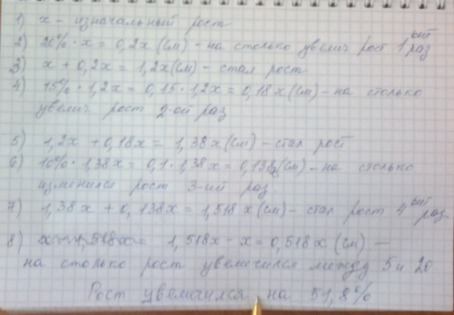 1) x - изначальный рост
2) 20% · x = 0,2x (см) - на столько увелич рост 1ый раз
3) x + 0,2x = 1,2x (см) - стал рост
4) 15% · 1,2x = 0,15 · 1,2x = 0,18x (см) - на столько
увелич рост 2-ой раз
5) 1,2x + 0,18x = 1,38x (см) - стал рост
6) 10% · 1,38x = 0,1 · 1,38x = 0,138x (см) - на столько
изменился рост 3-ий раз
7) 1,38x + 0,138x = 1,518x (см) - стал рост 4ый раз
8) 1,518x - x = 0,518x (см) —
на столько рост увеличился между 5 и 20
Рост увеличился на 51,8%